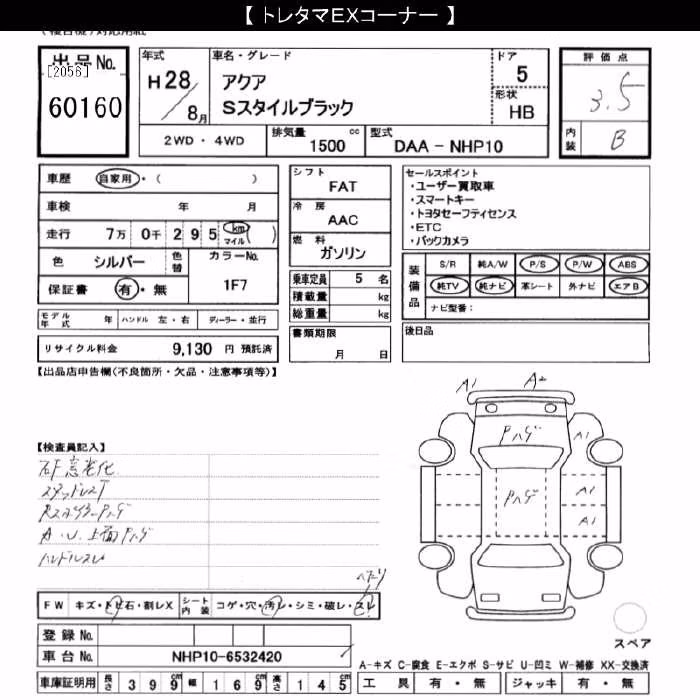 【 トレタマEXコーナー 】
出品No.
[2056]
60160
年式
H28/8月
車名・グレード
アクア
Sスタイルブラック
ドア
5
形状
HB
評価点
3.5
内装
B
2WD ・ 4WD
排気量 1500 cc
型式 DAA - NHP10
車歴 自家用 ・ ( )
車検 年 月
走行 7万 0千 2 9 5 km マイル ( )
色 シルバー 色替 カラーNo. 1F7
保証書 有 ・ 無
モデル年式 年 ハンドル 左 ・ 右 ディーラー ・ 並行
リサイクル料金 9,130 円 預託済
シフト
FAT
冷房
AAC
燃料
ガソリン
乗車定員 5 名
積載量 kg
総重量 kg
書類期限
月 日
セールスポイント
・ユーザー買取車
・スマートキー
・トヨタセーフティセンス
・ETC
・バックカメラ
装備品
S/R 純A/W P/S P/W ABS
純TV 純ナビ 革シート 外ナビ エアB
ナビ型番:
後日品
【出品店申告欄(不良箇所・欠品・注意事項等)】
【検査員記入】
スタッドレス
A.U.上面Pハゲ
ハンドルスレ
A1 A2
Pハゲ
A1
Pハゲ
A1
A1
FW キズ・トビ石・割レX シート内装 コゲ・穴・汚レ・シミ・破レ・スレ
ヘタリ
登録No.
車台No. NHP10-6532420
車庫証明用 長さ 3 9 9 cm 幅 1 6 9 cm 高さ 1 4 5 cm
スペア
A-キズ C-腐食 E-エクボ S-サビ U-凹ミ W-補修 XX-交換済
工具 有 ・ 無 ジャッキ 有 ・ 無